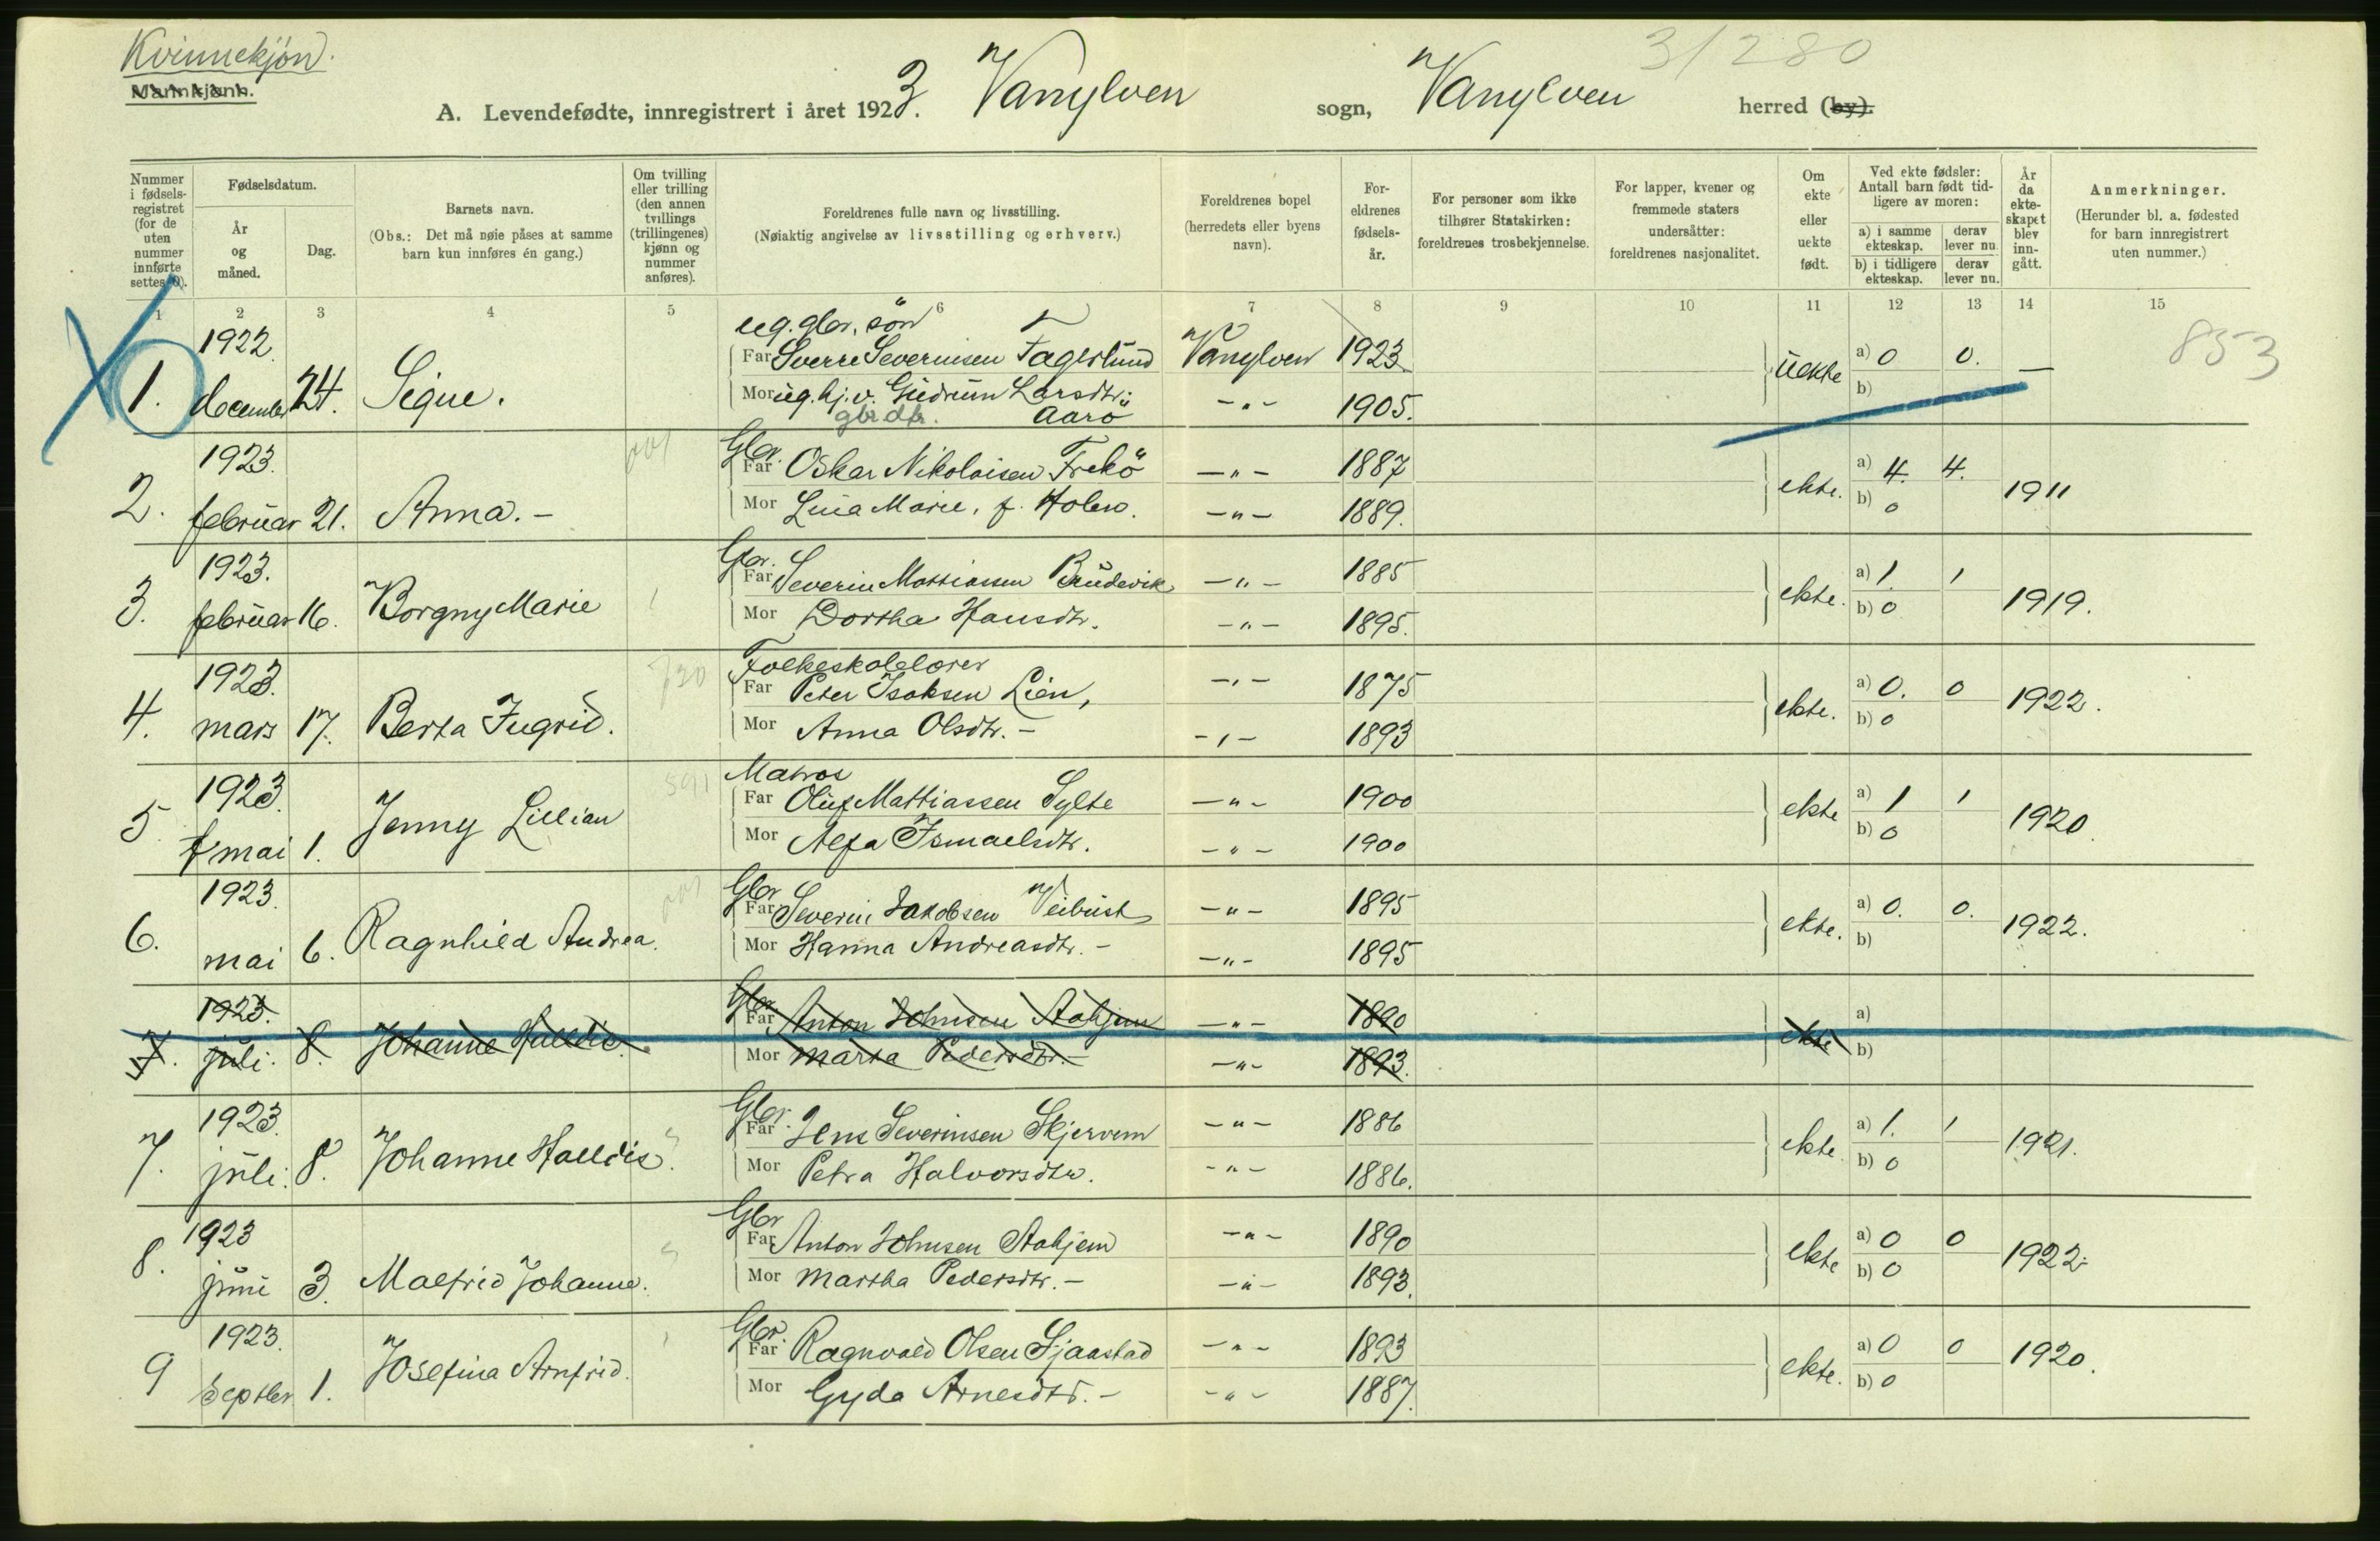 Kvinnekjøn.
Mannkjønn.
3/280
A. Levendefødte, innregistrert i året 1923. Vanylven sogn, Vanylven herred (by).
Nummer i fødsels-registret (for de uten nummer innførte settes 0).
Fødselsdatum.
År og måned.
Dag.
Barnets navn.
(Obs.: Det må nøie påses at samme barn kun innføres én gang.)
Om tvilling eller trilling (den annen tvillings (trillingenes) kjønn og nummer anføres).
Foreldrenes fulle navn og livsstilling.
(Nøiaktig angivelse av livsstilling og erhverv.)
Foreldrenes bopel (herredets eller byens navn).
For-eldrenes fødsels-år.
For personer som ikke tilhører Statskirken: foreldrenes trosbekjennelse.
For lapper, kvener og fremmede staters undersåtter: foreldrenes nasjonalitet.
Om ekte eller uekte født.
Ved ekte fødsler: Antall barn født tid-ligere av moren:
a) i samme ekteskap. derav lever nu.
b) i tidligere ekteskap. derav lever nu.
År da ekte-skapet blev inn-gått.
Anmerkninger.
(Herunder bl. a. fødested for barn innregistrert uten nummer.)
1 2 3 4 5 6 7 8 9 10 11 12 13 14 15
1922 ug. gbr. søn
1. december 24. Signe. Far Sverre Severinsen Fagerlund Vanylven 1923 uekte a) 0 0. — 853
Mor ug. hj. v. Gudrun Larsdtr. -"- 1905. b)
gbr. dtr. Aarö
1923. Gbr.
2. februar 21. Anna. - 001 Far Oskar Nikolaisen Frekö -"- 1887 ekte. a) 4. 4. 1911
Mor Lina Marie, f. Holen. -"- 1889. b) 0
1923. Gbr.
3. februar 16. Borgny Marie 1 Far Severin Mattiassen Brudevik -"- 1885 ekte. a) 1. 1 1919.
Mor Dorthea Hansdtr. -"- 1895. b) 0
1923. Folkeskolelærer
4. mars 17. Berta Ingrid. 730 Far Peter Isaksen Lien, -"- 1875 ekte. a) 0. 0 1922.
Mor Anna Olsdtr. - -"- 1893 b) 0
1923. Matros
5 mai 1. Jenny Lillian 591 Far Oluf Mattiassen Sylte -"- 1900 ekte a) 1 1 1920
Mor Alfa Ismaelsdtr. -"- 1900 b) 0
1923. Gbr
6. mai 6. Ragnhild Andrea. 001 Far Severin Jakobsen Veibust -"- 1895 ekte. a) 0. 0. 1922.
Mor Hanna Andreasdtr. - -"- 1895 b)
1923. Gbr
7. juli. 8. Johanne Halldis. Far Anton Johnsen Aahjem -"- 1890 ekte a)
Mor Marta Pedersdtr. - -"- 1893. b)
1923. Gbr.
7. juli. 8. Johanne Halldis. Far Jens Severinsen Skjervem -"- 1886 ekte. a) 1. 1 1921.
Mor Petra Halvorsdtr. -"- 1886. b) 0
1923 Gbr
8. juni 3. Malfrid Johanne. Far Anton Johnsen Aahjem -"- 1890 ekte a) 0 0 1922.
Mor Martha Pedersdtr. - -"- 1893. b) 0
1923. Gbr.
9 septbr 1. Josefina Arnfrid. Far Ragnvald Olsen Sjaastad -"- 1893 ekte. a) 0 0 1920.
Mor Gyda Arnesdtr. - -"- 1887. b) 0